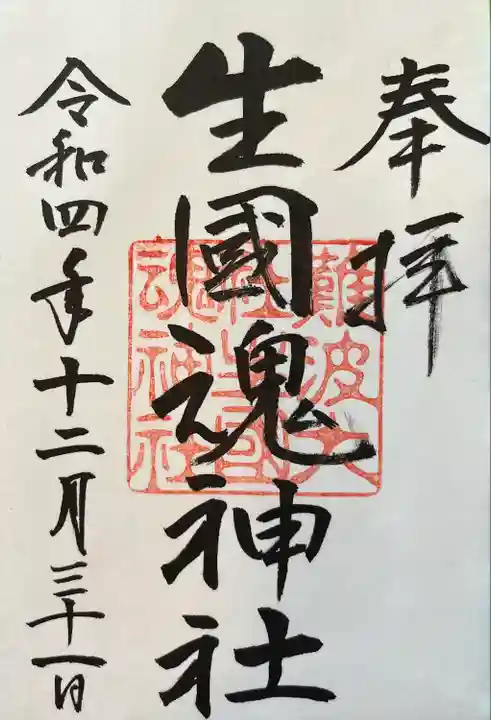 奉拝
生國魂神社
難波大
社生國
魂神社
令和四年十二月三十一日